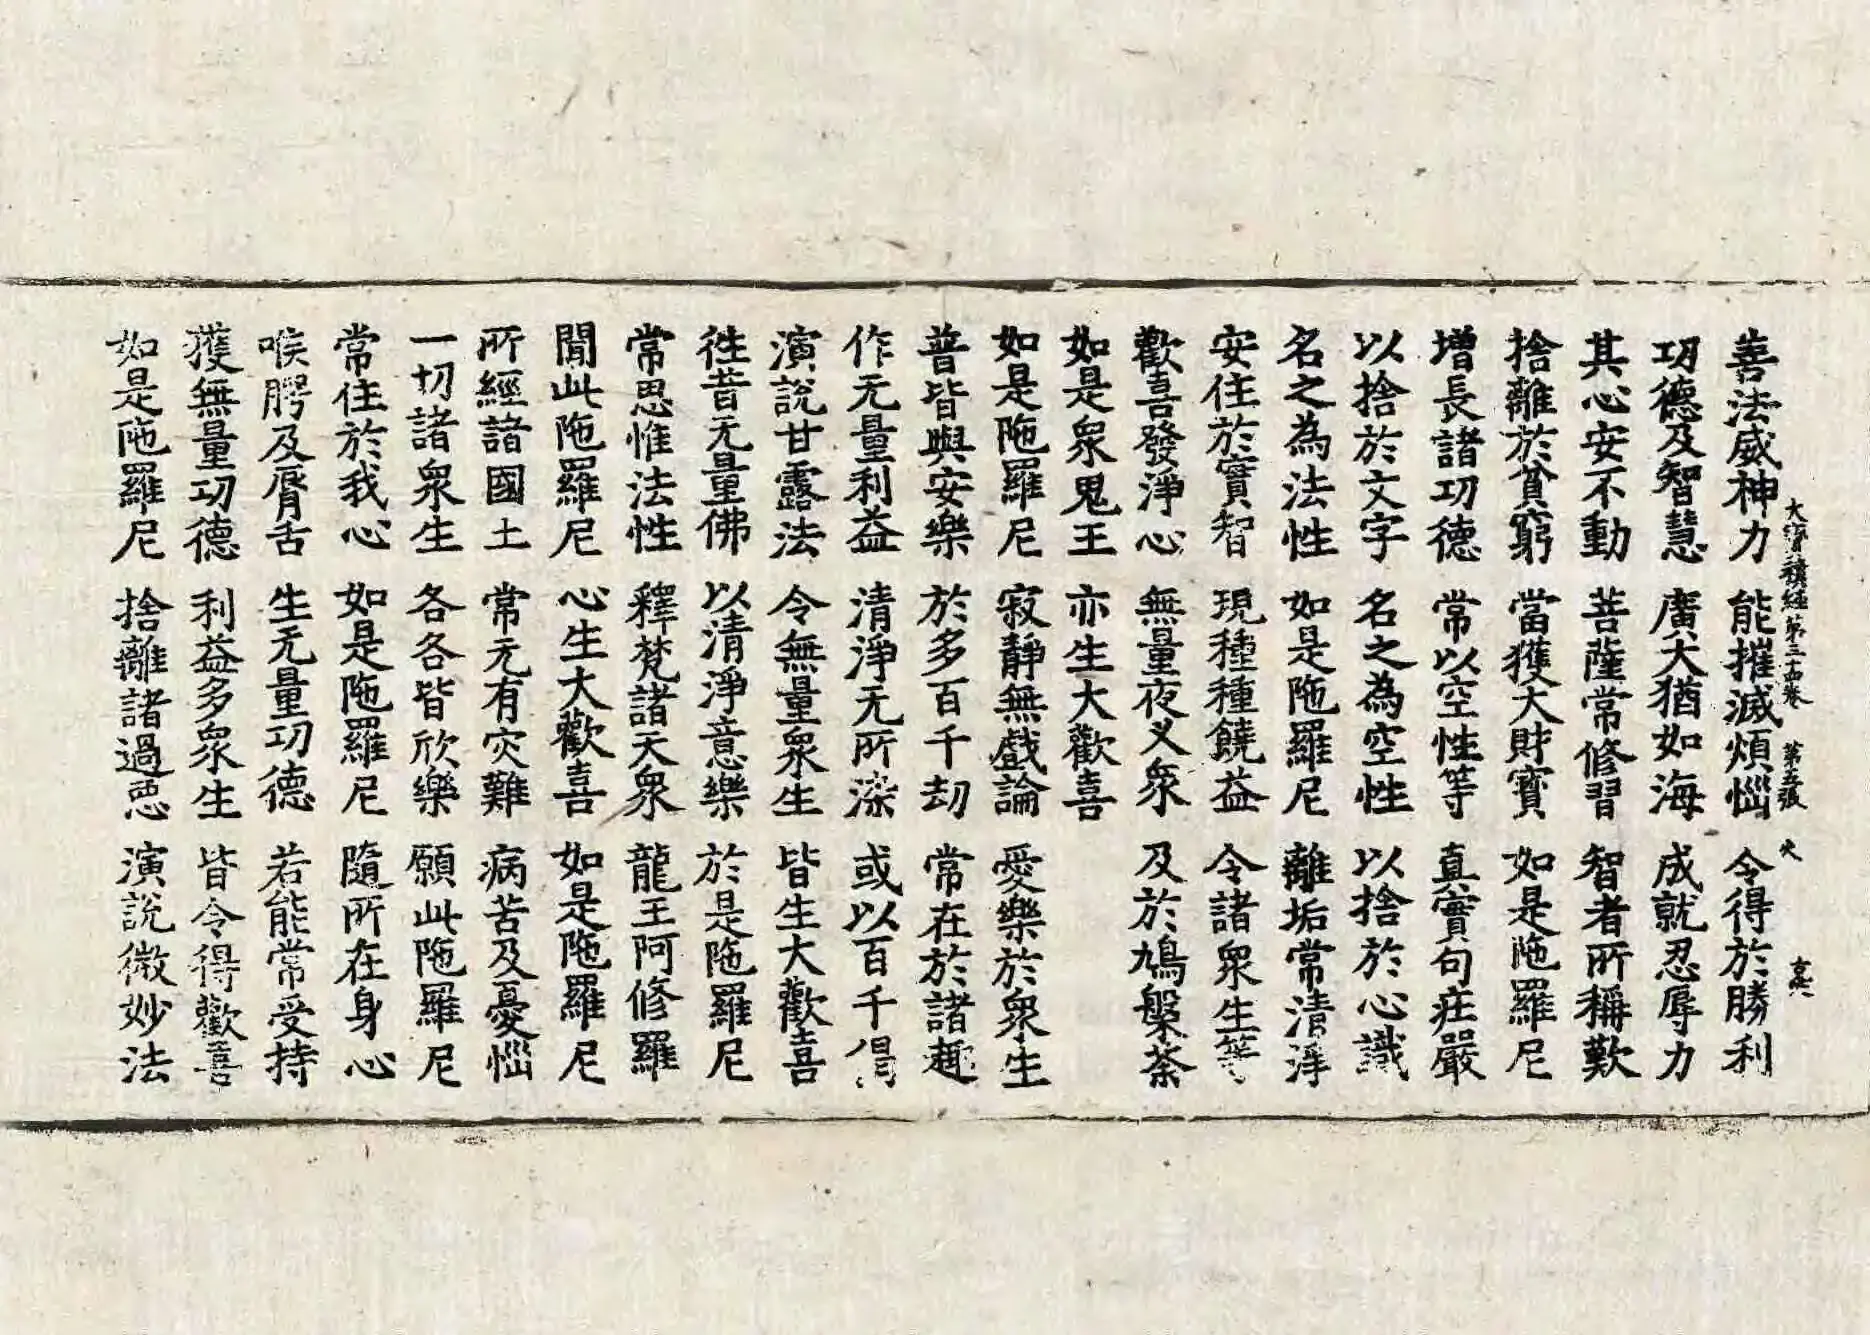 善法威神力 能摧滅煩惱 令得於勝利
大寶積經第三十四卷 第五張 火
功德及智慧 廣大猶如海 成就忍辱力
其心安不動 菩薩常修習 智者所稱歎
捨離於貧窮 當獲大財寶 如是陁羅尼
增長諸功德 常以空性等 真實句莊嚴
以捨於文字 名之為空性 以捨於心識
名之為法性 如是陁羅尼 離垢常清淨
安住於實智 現種種饒益 令諸眾生等
歡喜發淨心 無量夜叉眾 及於鳩槃荼
如是眾鬼王 亦生大歡喜
如是陁羅尼 寂靜無戲論 愛樂於眾生
普皆與安樂 於多百千劫 常在於諸趣
作无量利益 清淨无所染 或以百千偈
演說甘露法 令無量眾生 皆生大歡喜
徃昔无量佛 以清淨意樂 於是陁羅尼
常思惟法性 釋梵諸天眾 龍王阿修羅
聞此陁羅尼 心生大歡喜 如是陁羅尼
所經諸國土 常无有灾難 病苦及憂惱
一切諸眾生 各各皆欣樂 願此陁羅尼
常住於我心 如是陁羅尼 隨所在身心
喉腭及脣舌 生无量功德 若能常受持
獲無量功德 利益多眾生 皆令得歡喜
如是陁羅尼 捨離諸過惡 演說微妙法